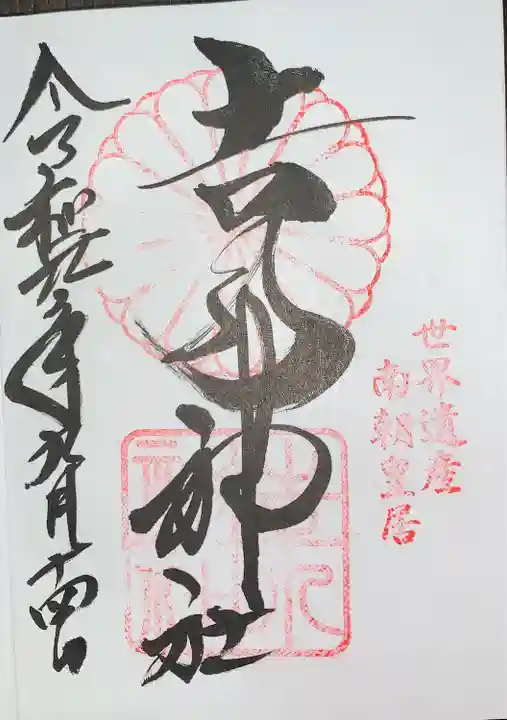 世界遺産
南朝皇居
吉水神社
令和元年九月十四日